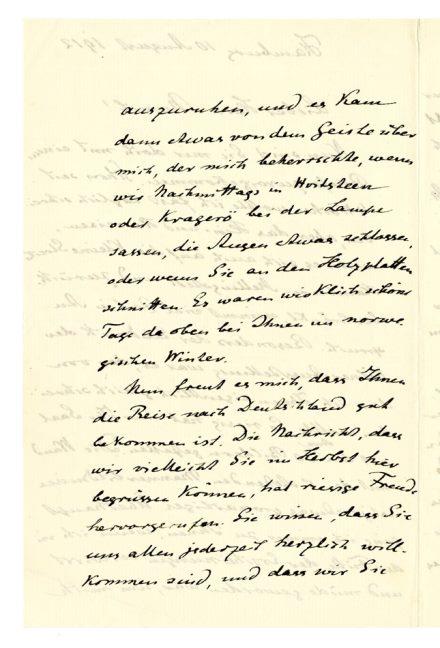 auszuruhen, und es kam
dann etwas von dem Geiste über
mich, der mich beherrschte, wenn
wir Nachmittags in Hvitsteen
oder Kragerö bei der Lampe
sassen, die Augen etwas schlossen,
oder wenn Sie an den Holzplatten
schnitten. Es waren wirklich schöne
Tage da oben bei Ihnen im norwe-
gischen Winter.
Nun freut es mich, dass Ihnen
die Reise nach Deutschland gut
bekommen ist. Die Nachricht, dass
wir vielleicht Sie im Herbst hier
begrüssen können, hat riesige Freude
hervorgerufen. Sie wissen, dass Sie
uns allen jederzeit herzlich will-
kommen sind, und dass wir Sie